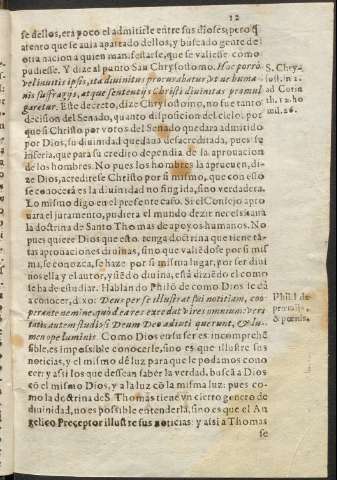 12
se dellos, era poco el admitirle entre sus dioses, pero q̃
atento que se auia apartado dellos, y buscado gente de
otra nacion a quien manifestarse, que se valiesse como
pudiesse. Y dize al punto San Chrysostomo. Hoc porrò
vel inuitis ipsis, ita diuinitus procurabatur, vt ne huma
nis suffragijs, atque sententijs Christi diuinitas promul
garetur. Este decreto, dize Chrysostomo, no fue tanto
decision del Senado, quanto disposicion del cielo: por
que si Christo por votos del Senado quedara admitido
por Dios, su diuinidad quedaua desacreditada, pues se
inferia, que para su credito dependia de la aprouacion
de los hombres. No pues los hombres la aprueuen, di-
ze Dios, acreditese Christo por si mismo, que con esso
se conocerà es la diuinidad no fingida, sino verdadera.
Lo mismo digo en el presente caso. Si el Consejo apro
uara el juramento, pudiera el mundo dezir necessitaua
la doctrina de Santo Thomas de apoyos humanos. No
pues quiere Dios que esto tenga doctrina que tiene tã-
tas aprouaciones diuinas, sino que valiẽdose por si mis
ma, se conozca, se haze por si misma lugar, por ser diui
nos ella y el autor, y siẽdo diuina, està diziẽdo el como
se ha de estudiar. Hablando Philò de como Dios se dà
à conocer, dixo: Deus per se illustrat sui notitiam, coo
perante nemine, quod ea res excedat vires omnium: veri
tatis autem studiosi Deum Deo adiuti querunt, & lu-
men ope luminis. Como Dios en su ser es incomprehẽ
sible, es impossible conocerle, sino es que illustre sus
noticias, y el mismo dè luz para que le podamos cono
cer: y assi los que dessean saber la verdad, buscã a Dios
cõ el mismo Dios, y a la luz cõ la misma luz: pues co-
mo la doctrina de S. Thomas tiene vn cierto genero de
diuinidad, no es possible entenderla, sino es que el An
gelico Preceptor illustre sus noticias: y assi a Thomas
se
S. Chry-
sost. in 2.
ad Corin
th. 12. ho
mil. 26.
Phil. l. de
præmijs,
& pœnis.